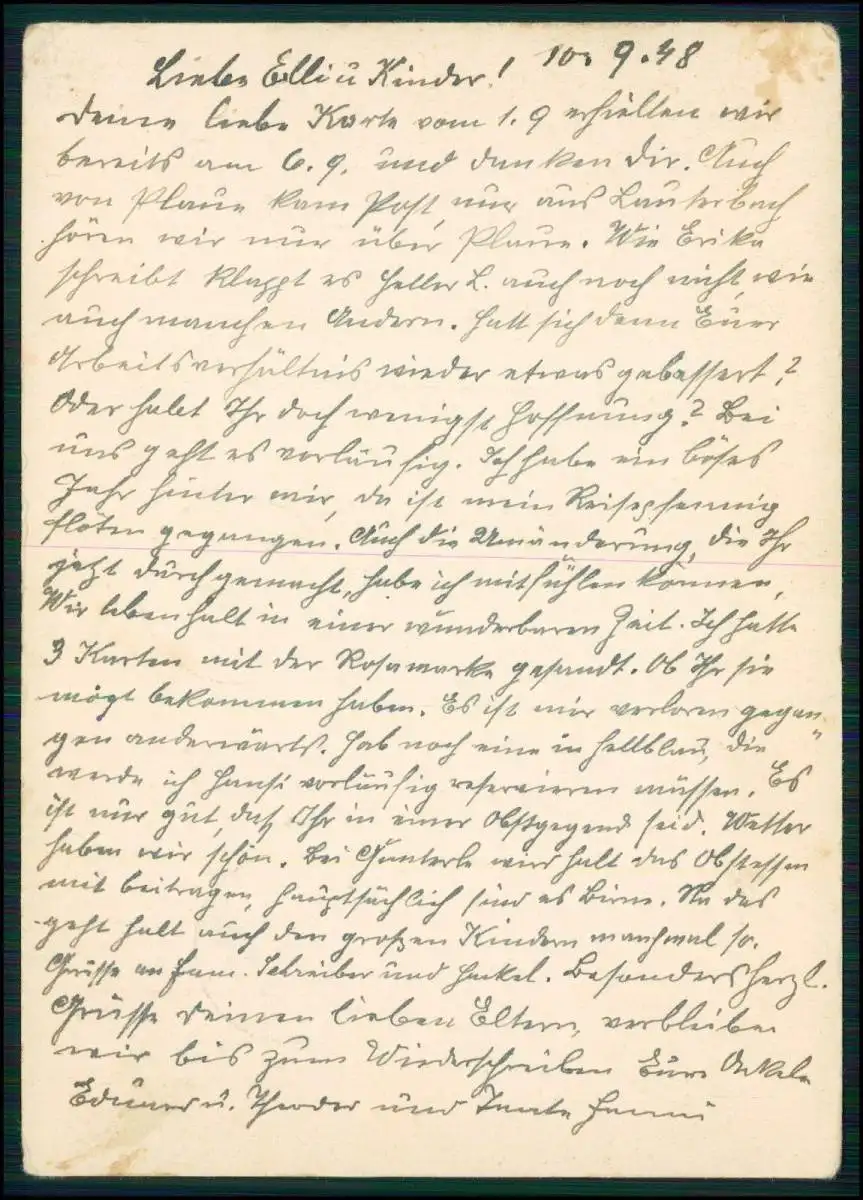 10. 9. 48
Liebe Elli u Kinder!
Deine liebe Karte vom 1. 9 erhielten wir
bereits am 6. 9. und danken Dir. Auch
von Plaue kam Post, nur aus Lauterbach
hören wir nur über Plaue. Wie Erika
schreibt klappt es Heller L. auch noch nicht, wie
auch manchen Andern. Hatt sich denn Euer
Arbeitsverhältnis wieder etwas gebessert?
Oder habt Ihr doch wenigst Hoffnung? Bei
uns geht es vorläufig. Ich habe ein böses
Jahr hinter mir, da ist mein Reisepfennig
flöten gegangen. Auch die Umänderung, die Ihr
jetzt durchgemacht, habe ich mitfühlen können,
Wir leben halt in einer wunderbaren Zeit. Ich hatte
3 Karten mit der Rosamarke gesandt. Ob Ihr sie
mögt bekommen haben. Es ist mir verloren gegan„
gen anderwärts. Hab noch eine in hellblau, die
werde ich Hansi vorläufig reservieren müssen. Es
ist nur gut, daß Ihr in einer Obstgegend seid. Wetter
haben wir schön. Bei Günterle wird halt das Obstessen
mit beitragen, hauptsächlich sind es Birne. Na das
geht halt auch den großen Kindern manchmal so.
Grüsse an Fam. Schreiber und Hackel. Besonders herzl.
Grüsse Deinen lieben Eltern, verbleiben
wir bis zum Wiederschreiben Eure Onkels
Eduard u. Theodor und Tante Hanni